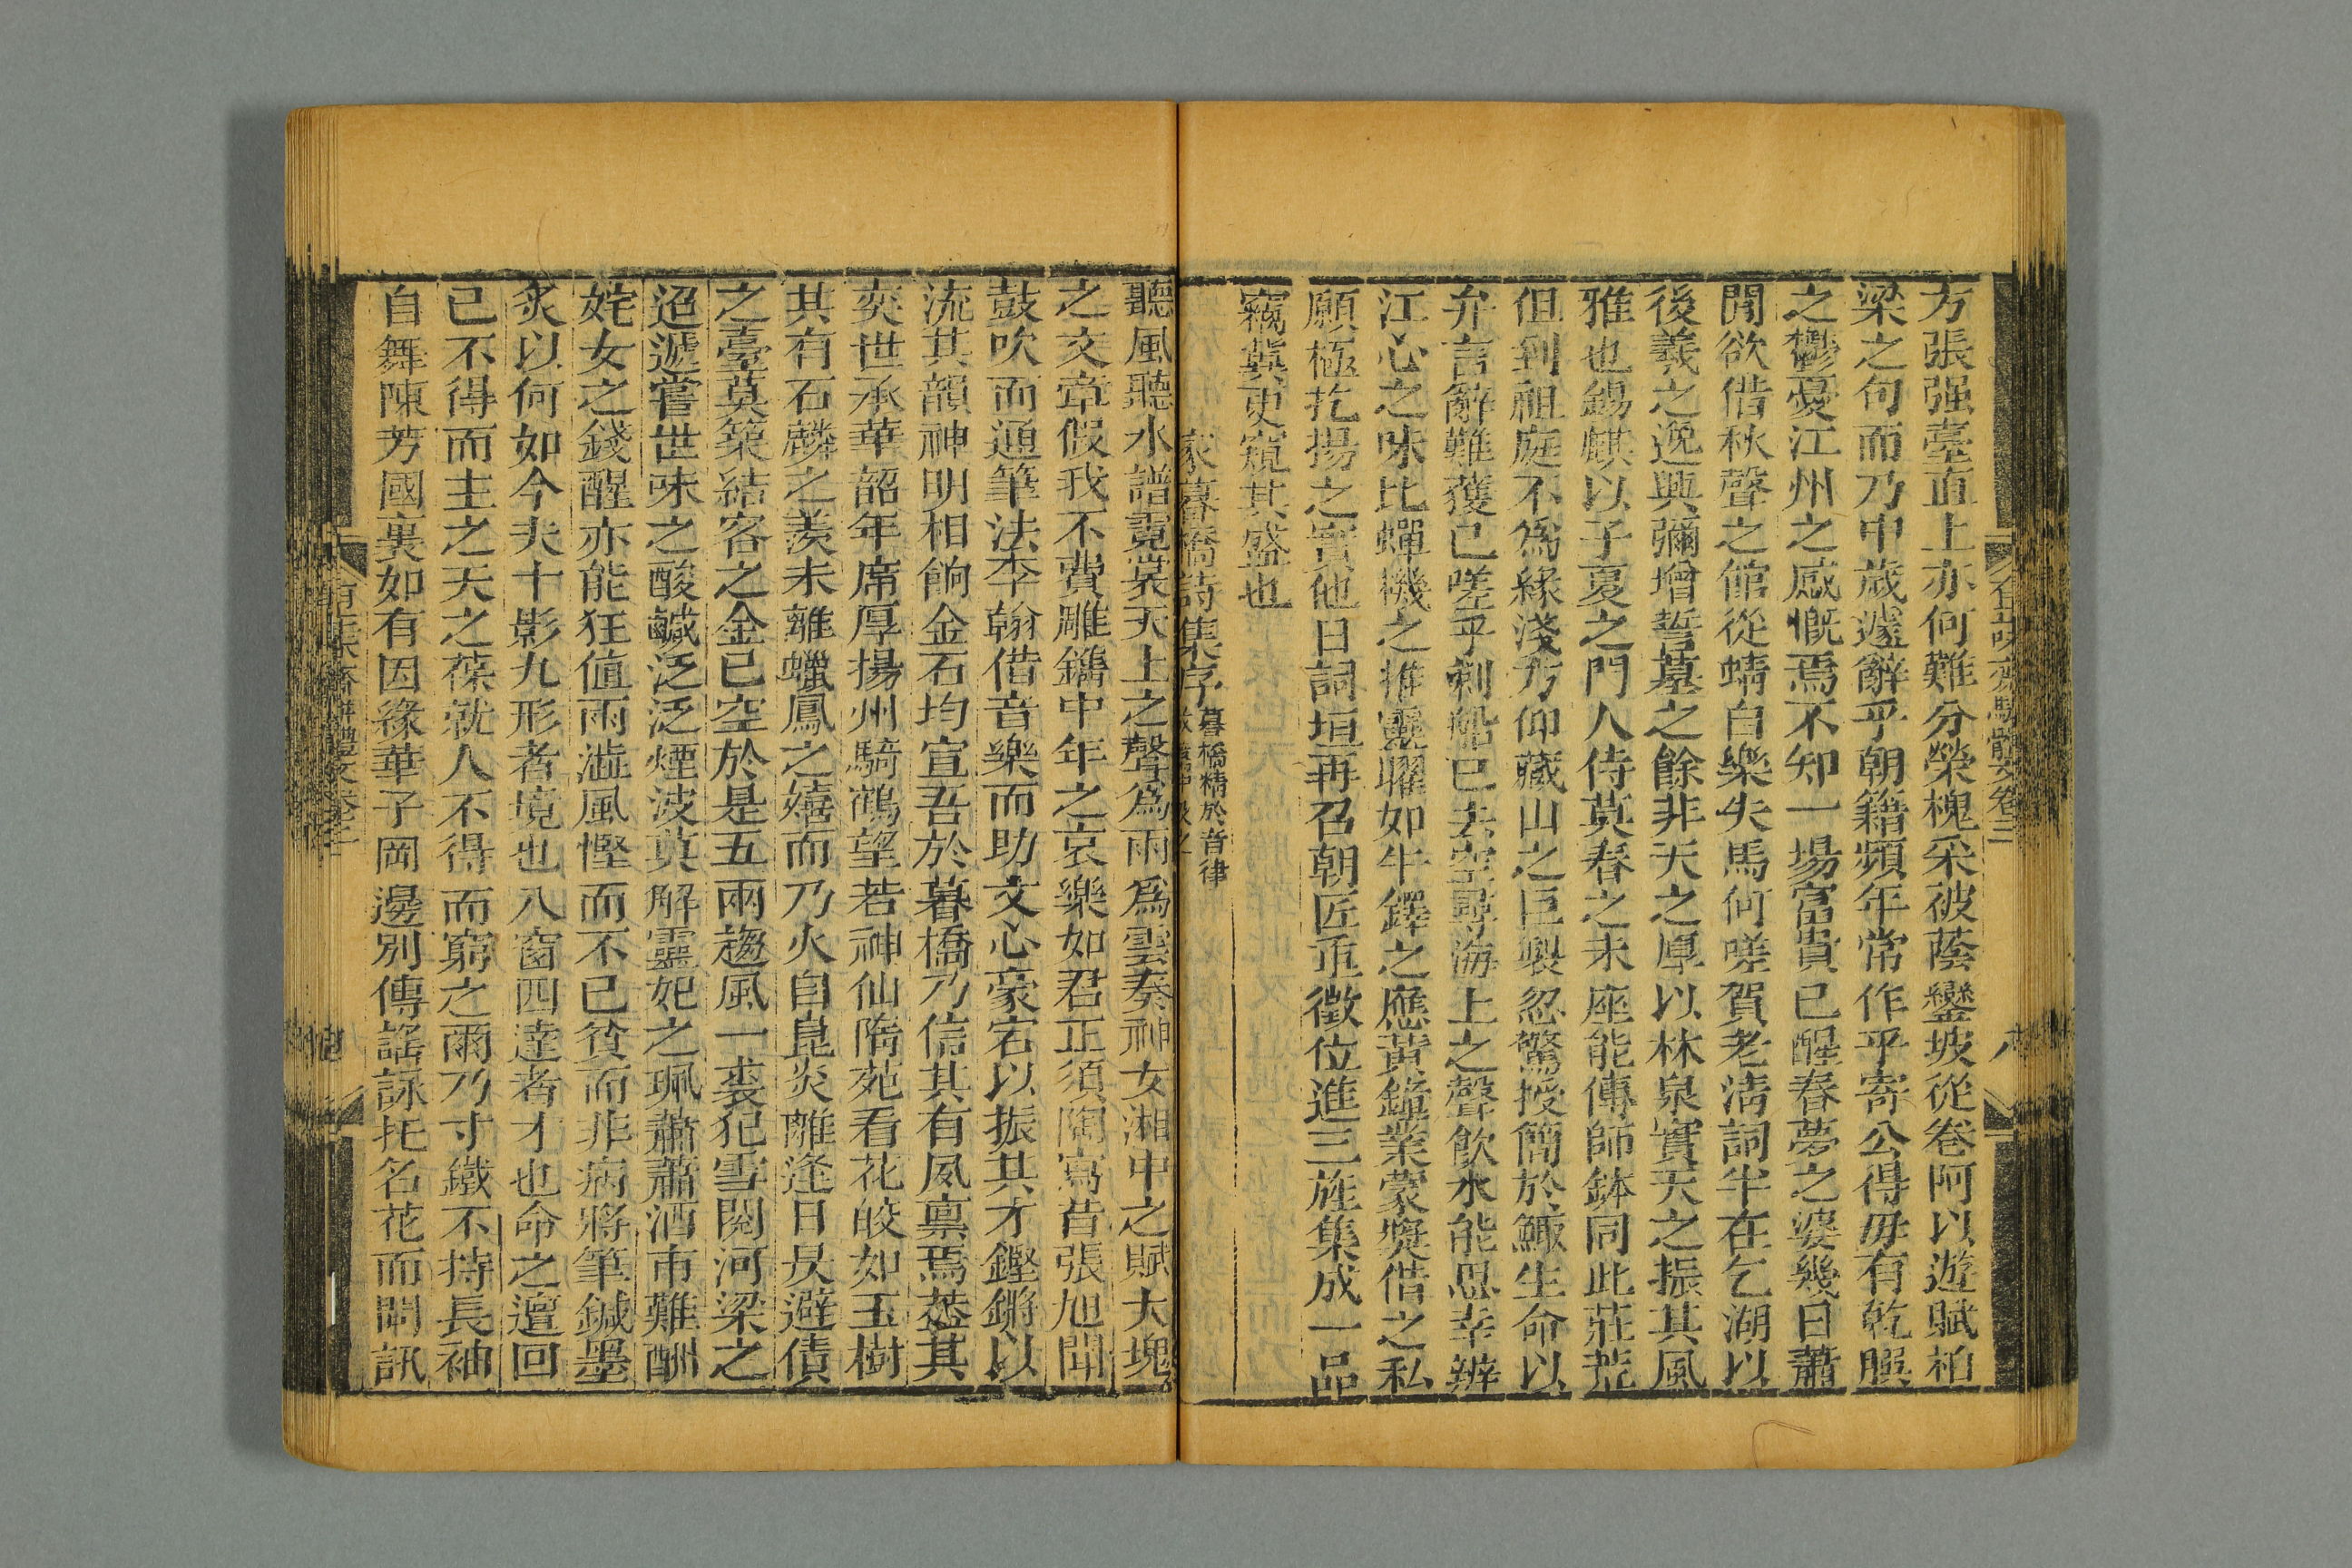 方張强臺直上亦何難分榮槐采被蔭鑾坡從卷阿以遊賦柏
梁之句而乃中歲遽辭乎朝籍頻年常作乎寄公得毋有乾𦠆
之鬱憂江州之感慨焉不知一場富貴已醒春夢之婆幾日蕭
閒欲借秋聲之館從蜻白樂失馬何嗟賀老淸詞半在乞湖以
後羲之逸興彌增誓墓之餘非天之厚以林泉實天之振其風
雅也錫麒以子夏之門人侍莫春之末座能傳師鉢同此莊荒
但到祖庭不爲緣淺乃仰藏山之巨製忽驚授簡於鯫生命以
弁言辭難獲已嗟乎刺船已去空尋海上之聲飮水能思幸辨
江心之味比蟬機之推靈曜如牛鐸之應黃鐘業蒙奬借之私
願極扢揚之實他日詞垣再召朝匠重徵位進三旌集成一品
竊冀更窺其盛也
家暮橋詩集序 暮橋精於音律
聽風聽水譜霓裳天上之聲爲雨爲雲奏神女湘中之賦大塊
之文章假我不費雕鐫中年之哀樂如君正須陶寫昔張旭聞
鼓吹而通筆法李翰借音樂而助文心豪宕以振其才鏗鏘以
流其韻神明相餉金石均宣吾於暮橋乃信其有夙禀焉葢其
奕世承華韶年席厚揚州騎鶴望若神仙隋苑看花皎如玉樹
其有石麟之羨未離蠟鳳之嬉而乃火自崑炎離逢日昃避債
之臺莫築結客之金已空於是五兩趨風一裘犯雪關河梁之
迢遞嘗世味之酸鹹泛泛煙波莫解靈妃之珮蕭蕭酒市難酬
姹女之錢醒亦能狂値雨澁風慳而不已貧而非病將筆鍼墨
炙以何如今夫十影九形者境也八窗四達者才也命之邅回
已不得而主之天之葆就人不得而窮之爾乃寸鐵不持長袖
自舞陳芳國裏如有因緣華子岡邊別傳謠詠托名花而開訊